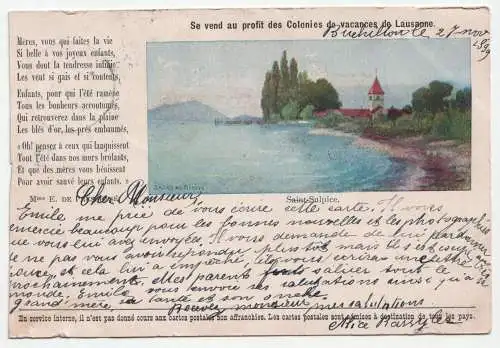 Se vend au profit des Colonies de vacances de Lausanne.
Buchillon le 27 nov
1899
Mères, vous qui faites la vie
Si belle à vos joyeux enfants,
Vous dont la tendresse infinie
Les veut si gais et si contents,
Enfants, pour qui l'été ramène
Tous les bonheurs accoutumés,
Qui retrouverez dans la plaine
Les blés d'or, les prés embaumés,
« Oh! pensez à ceux qui languissent
Tout l'été dans nos murs brûlants,
Et que des mères vous bénissent
Pour avoir sauvé leurs enfants. »
Mme E. DE
Saint-Sulpice.
Cher Monsieur,
Emile me prie de vous écrire cette carte. Il vous
remercie beaucoup pour les bonnes nouvelles et les photographies
que vous lui avez envoyées. Il vous demande de lui pardonner
de ne pas vous avoir répondu plus tôt mais il s'est
et cela lui a vous écrirai une lettre
prochainements. Mes parents font saluer tout le
monde, Emile vous envoie ses salutations ainsi qu'à sa
grand'mère, sa tante et son oncle.
Recevez monsieur mes salutations.
En service interne, il n'est pas donné cours aux cartes postales non affranchies. Les cartes postales sont admises à destination de tous les pays.